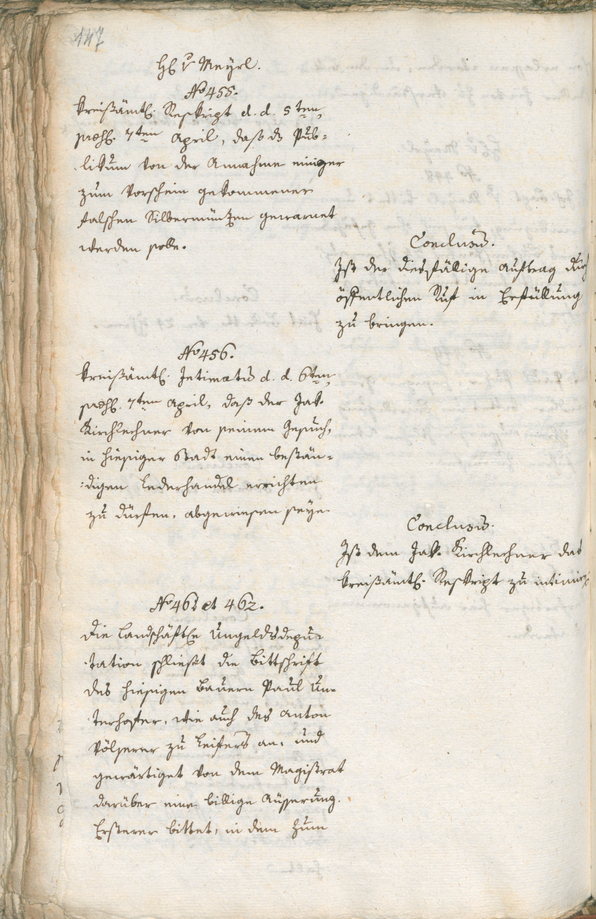 147
H: v: Meyrl.
No 455.
Kreißämtl: Reskript d. d. 5ten,
praes. 7ten April, daß das Pub-
likum von der Annahme einiger
zum Vorschein gekommener
falschen Silbermünzen gewarnet
werden solle.
Conclusus.
Ist der diesfällige Auftrag durch
öffentlichen Ruf in Erfüllung
zu bringen.
No 456.
Kreißämtl: Intimatus d. d. 6ten,
praes. 7ten April, daß der Jak.
Kirchlechner von seinem Gesuch,
in hiesiger Stadt einen bestän-
digen Lederhandel errichten
zu dürfen, abgewiesen seye.
Conclusus.
Ist dem Jak. Kirchlechner das
Kreißämtl: Reskript zu
No 461 et 462.
Die Landschäftle Ungeldsdepu-
tation schließt die Bittschrift
des hiesigen Bauern Paul Un-
terhofer, wie auch des Anton
Völserer zu Leifers an, und
gewärtiget von dem Magistrat
darüber eine billige Äußerung.
Ersterer bittet, in dem zum